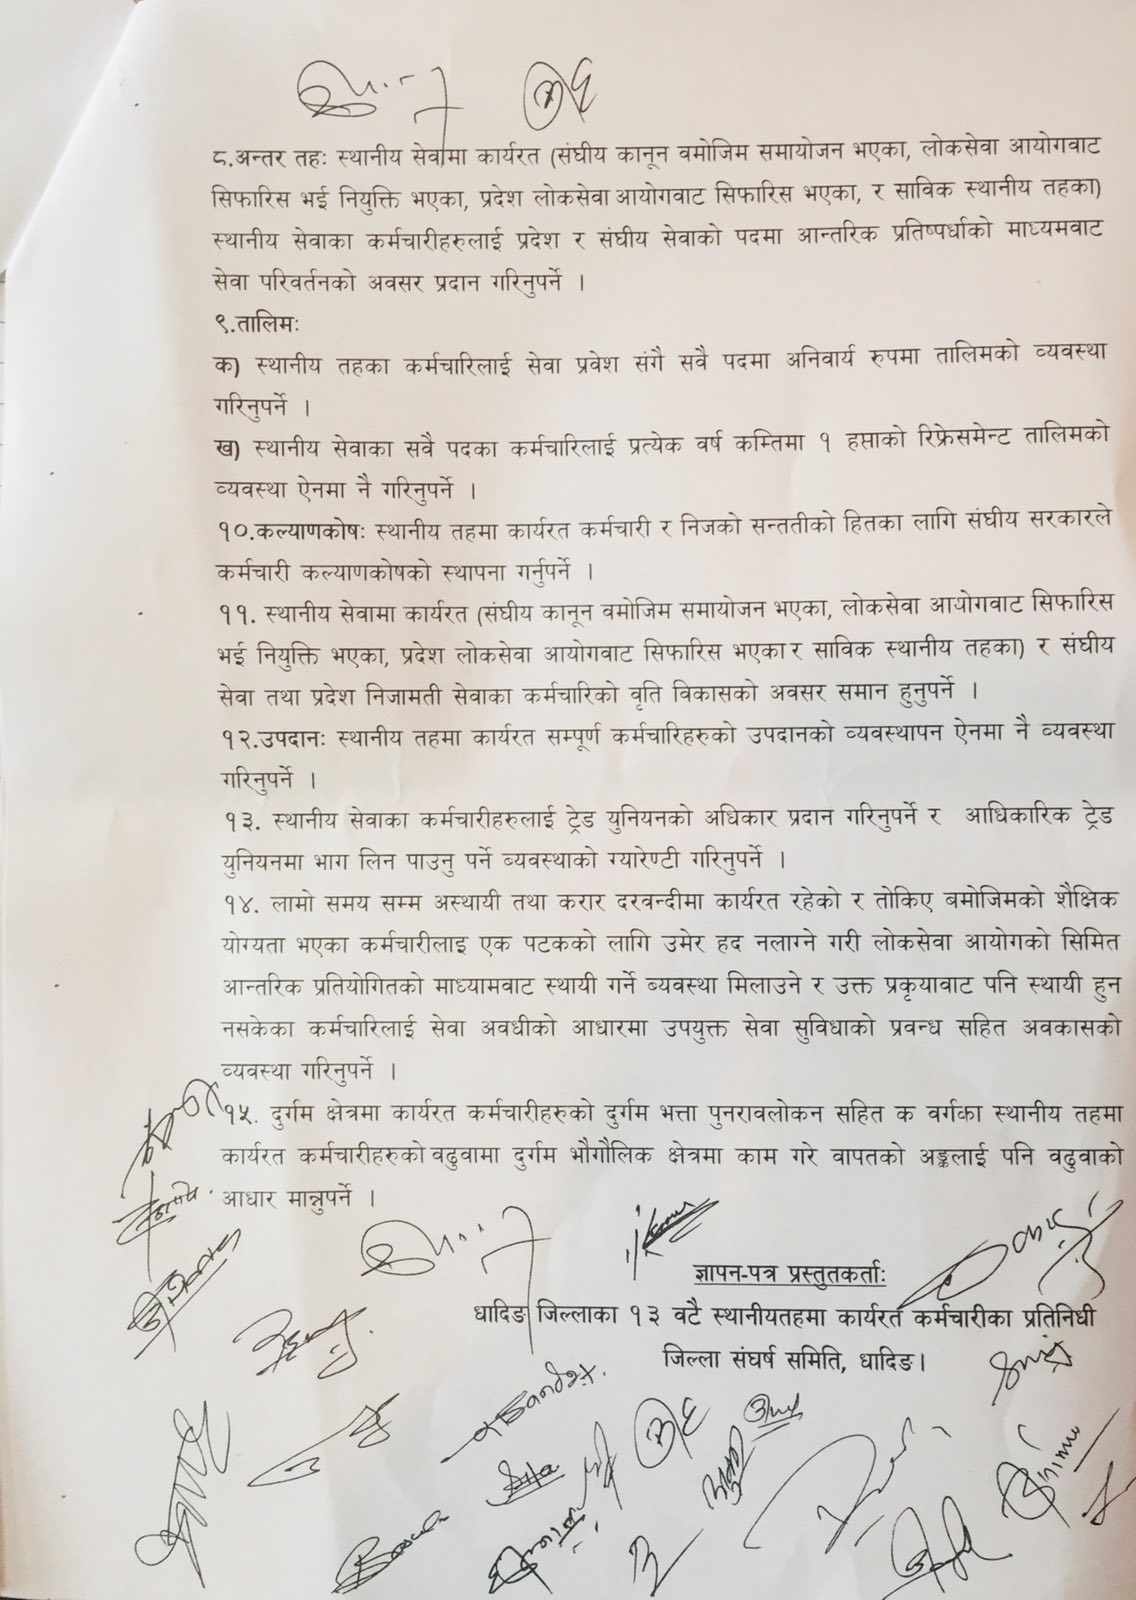 ८.अन्तर तहः स्थानीय सेवामा कार्यरत (संघीय कानून वमोजिम समायोजन भएका, लोकसेवा आयोगवाट
सिफारिस भई नियुक्ति भएका, प्रदेश लोकसेवा आयोगवाट सिफारिस भएका, र साविक स्थानीय तहका)
स्थानीय सेवाका कर्मचारीहरुलाई प्रदेश र संघीय सेवाको पदमा आन्तरिक प्रतिष्पर्धाको माध्यमवाट
सेवा परिवर्तनको अवसर प्रदान गरिनुपर्ने ।
९.तालिमः
क) स्थानीय तहका कर्मचारिलाई सेवा प्रवेश संगै सवै पदमा अनिवार्य रुपमा तालिमको व्यवस्था
गरिनुपर्ने ।
ख) स्थानीय सेवाका सवै पदका कर्मचारिलाई प्रत्येक वर्ष कम्तिमा १ हप्ताको रिफ्रेसमेन्ट तालिमको
व्यवस्था ऐनमा नै गरिनुपर्ने ।
१०.कल्याणकोषः स्थानीय तहमा कार्यरत कर्मचारी र निजको सन्ततीको हितका लागि संघीय सरकारले
कर्मचारी कल्याणकोषको स्थापना गर्नुपर्ने ।
११. स्थानीय सेवामा कार्यरत (संघीय कानून वमोजिम समायोजन भएका, लोकसेवा आयोगवाट सिफारिस
भई नियुक्ति भएका, प्रदेश लोकसेवा आयोगवाट सिफारिस भएका र साविक स्थानीय तहका) र संघीय
सेवा तथा प्रदेश निजामती सेवाका कर्मचारिको वृति विकासको अवसर समान हुनुपर्ने ।
१२.उपदानः स्थानीय तहमा कार्यरत सम्पूर्ण कर्मचारिहरुको उपदानको व्यवस्थापन ऐनमा नै व्यवस्था
गरिनुपर्ने ।
१३. स्थानीय सेवाका कर्मचारीहरुलाई ट्रेड युनियनको अधिकार प्रदान गरिनुपर्ने र आधिकारिक ट्रेड
युनियनमा भाग लिन पाउनु पर्ने व्यवस्थाको ग्यारेण्टी गरिनुपर्ने ।
१४. लामो समय सम्म अस्थायी तथा करार दरवन्दीमा कार्यरत रहेको र तोकिए बमोजिमको शैक्षिक
योग्यता भएका कर्मचारीलाइ एक पटकको लागि उमेर हद नलाग्ने गरी लोकसेवा आयोगको सिमित
आन्तरिक प्रतियोगितको माध्यामवाट स्थायी गर्ने ब्यवस्था मिलाउने र उक्त प्रकृयावाट पनि स्थायी हुन
नसकेका कर्मचारिलाई सेवा अवधीको आधारमा उपयुक्त सेवा सुविधाको प्रवन्ध सहित अवकासको
व्यवस्था गरिनुपर्ने ।
१५. दुर्गम क्षेत्रमा कार्यरत कर्मचारीहरुको दुर्गम भत्ता पुनरावलोकन सहित क वर्गका स्थानीय तहमा
कार्यरत कर्मचारीहरुको वढुवामा दुर्गम भौगौलिक क्षेत्रमा काम गरे वापतको अङ्कलाई पनि वढुवाको
आधार मान्नुपर्ने ।
ज्ञापन-पत्र प्रस्तुतकर्ताः
धादिङ जिल्लाका १३ वटै स्थानीयतहमा कार्यरत कर्मचारीका प्रतिनिधी
जिल्ला संघर्ष समिति, धादिङ।